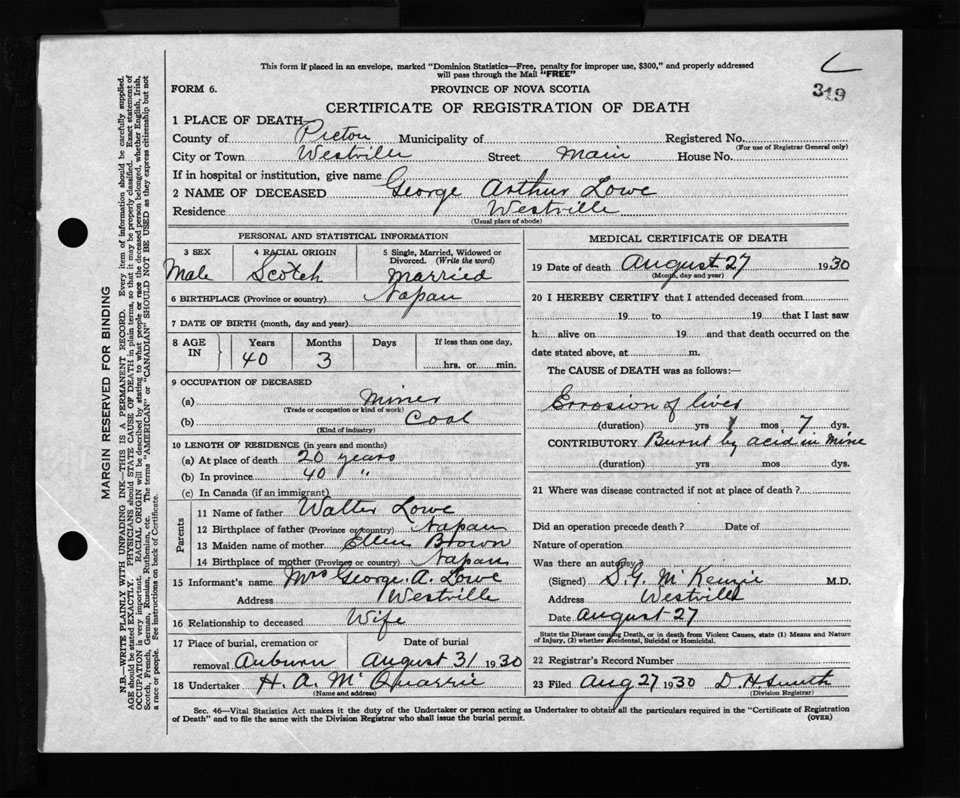 This form if placed in an envelope, marked "Dominion Statistics—Free, penalty for improper use, $300," and properly addressed
will pass through the Mail "FREE"
FORM 6.
PROVINCE OF NOVA SCOTIA
319
CERTIFICATE OF REGISTRATION OF DEATH
1 PLACE OF DEATH—
County of Pictou Municipality of Registered No.
(For use of Registrar General only)
City or Town Westville Street Main House No.
If in hospital or institution, give name
2 NAME OF DECEASED George Arthur Lowe
Residence Westville
(Usual place of abode)
PERSONAL AND STATISTICAL INFORMATION
3 SEX 4 RACIAL ORIGIN 5 Single, Married, Widowed or
Divorced. (Write the word)
Male Scotch Married
6 BIRTHPLACE (Province or country) Napan
7 DATE OF BIRTH (month, day and year)
8 AGE IN Years Months Days If less than one day,
40 3 hrs. or min.
9 OCCUPATION OF DECEASED
(a) Miner
(Trade or occupation or kind of work)
(b) Coal
(Kind of industry)
10 LENGTH OF RESIDENCE (in years and months)
(a) At place of death 20 years
(b) In province 40 "
(c) In Canada (if an immigrant)
Parents
11 Name of father Walter Lowe
12 Birthplace of father (Province or country) Napan
13 Maiden name of mother Ellen Brown
14 Birthplace of mother (Province or country) Napan
15 Informant's name Mrs George A. Lowe
Address Westville
16 Relationship to deceased Wife
17 Place of burial, cremation or Date of burial
removal Auburn August 31 1930
18 Undertaker H. A. McQuarrie
(Name and address)
MEDICAL CERTIFICATE OF DEATH
19 Date of death August 27 1930
(Month, day and year)
20 I HEREBY CERTIFY that I attended deceased from
19 to 19 that I last saw
h alive on 19 and that death occurred on the
date stated above, at m.
The CAUSE of DEATH was as follows:—
Errosion of liver
(duration) yrs mos 7 dys.
CONTRIBUTORY Burnt by acid in mine
(duration) yrs mos dys.
21 Where was disease contracted if not at place of death?
Did an operation precede death? Date of
Nature of operation
Was there an autopsy?
(Signed) S. G. McKenzie M.D.
Address Westville
Date August 27
State the Disease causing Death, or in death from Violent Causes, state (1) Means and Nature
of Injury, (2) whether Accidental, Suicidal or Homicidal.
22 Registrar's Record Number
23 Filed Aug 27 1930 D. H. Smith
(Division Registrar)
Sec. 46—Vital Statistics Act makes it the duty of the Undertaker or person acting as Undertaker to obtain all the particulars required in the "Certificate of Registration
of Death" and to file the same with the Division Registrar who shall issue the burial permit.
(OVER)
MARGIN RESERVED FOR BINDING
N.B.—WRITE PLAINLY WITH UNFADING INK—THIS IS A PERMANENT RECORD. Every item of information should be carefully supplied.
AGE should be stated EXACTLY. PHYSICIANS should STATE CAUSE OF DEATH in plain terms, so that it may be properly classified. Exact statement of
OCCUPATION is very important. RACIAL ORIGIN will be described by stating to what people or race the deceased person belonged, whether English, Irish,
Scotch, French, German, Russian, Ruthenian, etc. The terms "AMERICAN" or "CANADIAN" SHOULD NOT BE USED as they express citizenship but not
a race or people. See instructions on back of Certificate.